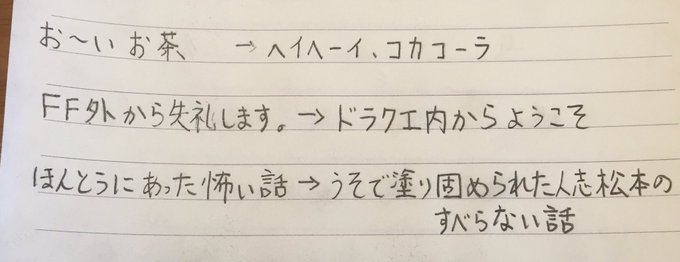 お～いお茶 → ヘイヘーイ、コカコーラ
FF外から失礼します。→ ドラクエ内からようこそ
ほんとうにあった怖い話 → うそで塗り固められた人志松本の
すべらない話